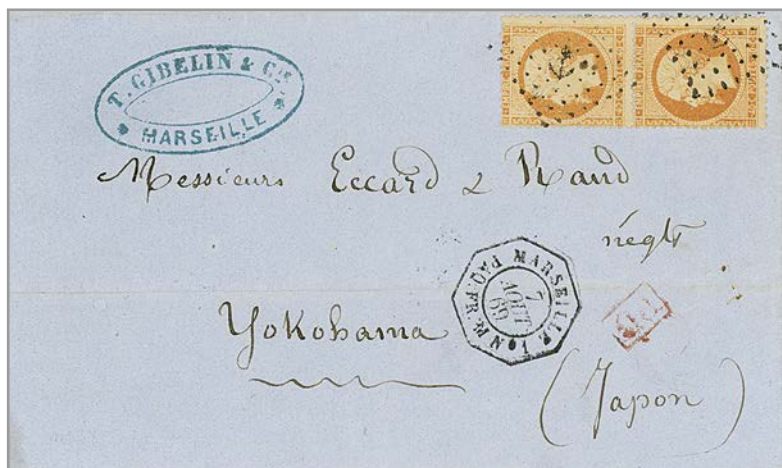 T. GIBELIN & Cie
MARSEILLE
Messieurs Eccard & Rand
négts
MARSEILLE
PAQ. FR.
7
AOUT
69
Yokohama
(Japon)